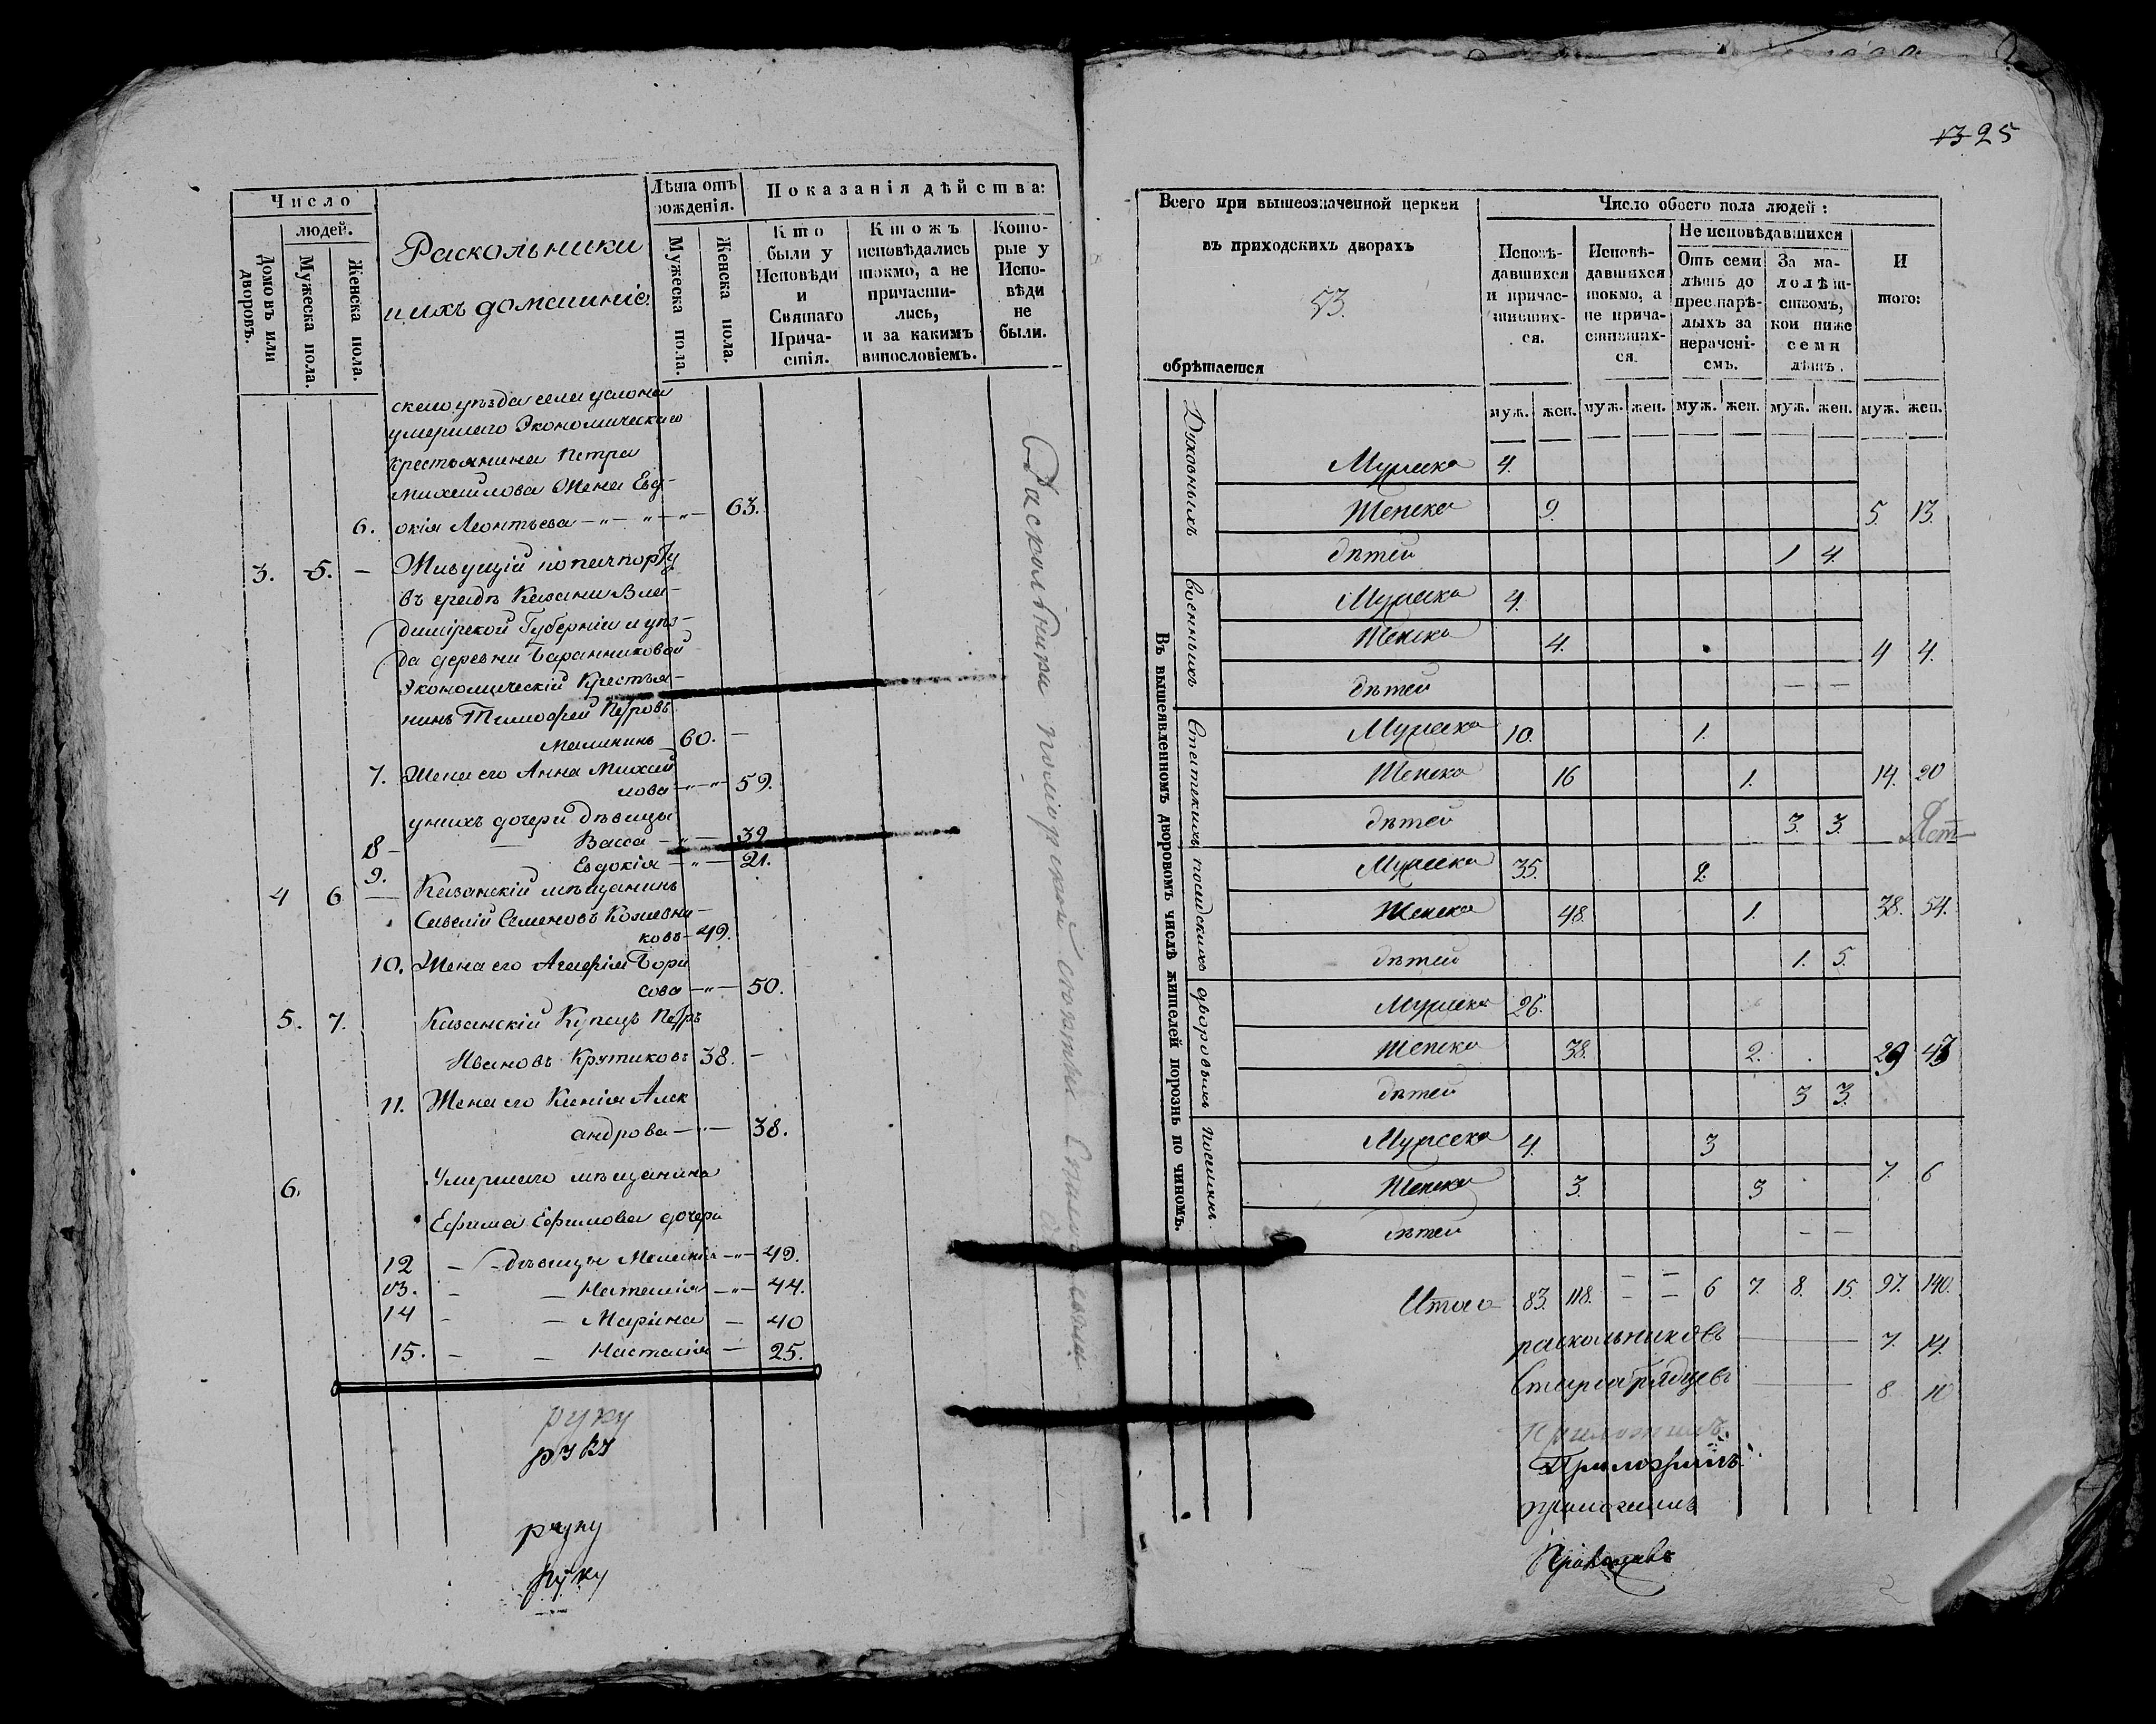 Число
людей.
Домовъ или дворовъ.
Мужеска пола.
Женска пола.
Раскольники
и ихъ домашніе.
Лѣта отъ
рожденія.
Мужеска пола.
Женска пола.
Показанія дѣйства:
Кто
были у
Исповѣди
и
Святаго
Прича-
стія.
Ктожъ
исповѣдались
токмо, а не
причасти-
лись,
и за какимъ
винословіемъ.
Кото-
рые у
Испо-
вѣди
не
были.
скаго уѣзда села Услона
умершаго Экономическаго
крестьянина Петра
Михайлова Жена Евд-
6. окія Леонтьева — 63.
3. 5. — Живущій по пачпорту
въ градѣ Казани Вла-
димірской Губерніи и уѣз-
да деревни Баранниковой
Экономическій Крестья-
нинъ Тимофей Петровъ
Малининъ 60. —
7. Жена его Анна Михай
лова — 59.
у нихъ дочери дѣвицы
8 — Васса — 39
9. Евдокія — 21.
4 6 — Казанскій мѣщанинъ
Савелій Семеновъ Кожевни-
ковъ — 49.
10. Жена его Агафія Бори
сова — 50.
5. 7. Казанскій Купецъ Петръ
Ивановъ Крупиковъ 38. —
11. Жена его Ксенія Алек
андрова — 38.
6. Умершаго мѣщанина
Ефима Ефимова дочери
12 — дѣвицы Меланія — 49.
13. — Наталія — 44.
14 — Марина — 40
15. — Настасія — 25.
руку
руку
руку
руку
Раскольники поморской
1325
Всего при вышеозначенной церкви
въ приходскихъ дворахъ
53.
обрѣтается
Число обоего пола людей:
Исповѣ-
давшихся
и причас-
тивших-
ся.
Исповѣ-
давшихся
токмо, а
не прича-
стивших-
ся.
Не исповѣдавшихся
Отъ семи
лѣтъ до
престарѣ-
лыхъ за
нерачені-
емъ.
За ма-
лолѣт-
ствомъ,
кои ниже
семи
лѣтъ.
И
того:
муж. жен. муж. жен. муж. жен. муж. жен. муж. жен.
Въ вышеявленномъ дворовомъ числѣ жителей порознь по чиномъ.
Духовныхъ
Мужеска 4.
Женска 9. 5. 13.
дѣтей 1 4.
военныхъ
Мужеска 4.
Женска 4. 4 4.
дѣтей — —
Статскихъ
Мужеска 10. 1.
Женска 16 1. 14. 20
дѣтей 3. 3.
посадскихъ
Мужеска 35. 2
Женска 48. 1. 38. 54.
дѣтей 1. 5.
дворовыхъ
Мужеска 26.
Женска 38. 2. 29 43
дѣтей 3 3.
поселянъ
Мужеска 4. 3
Женска 3. 3 7. 6
дѣтей — —
Итого 83. 118. — — 6 7. 8. 15. 97. 140.
раскольниковъ — 7. 14.
Старообрядцевъ — 8. 10
Приложилъ
Приложилъ
приложилъ